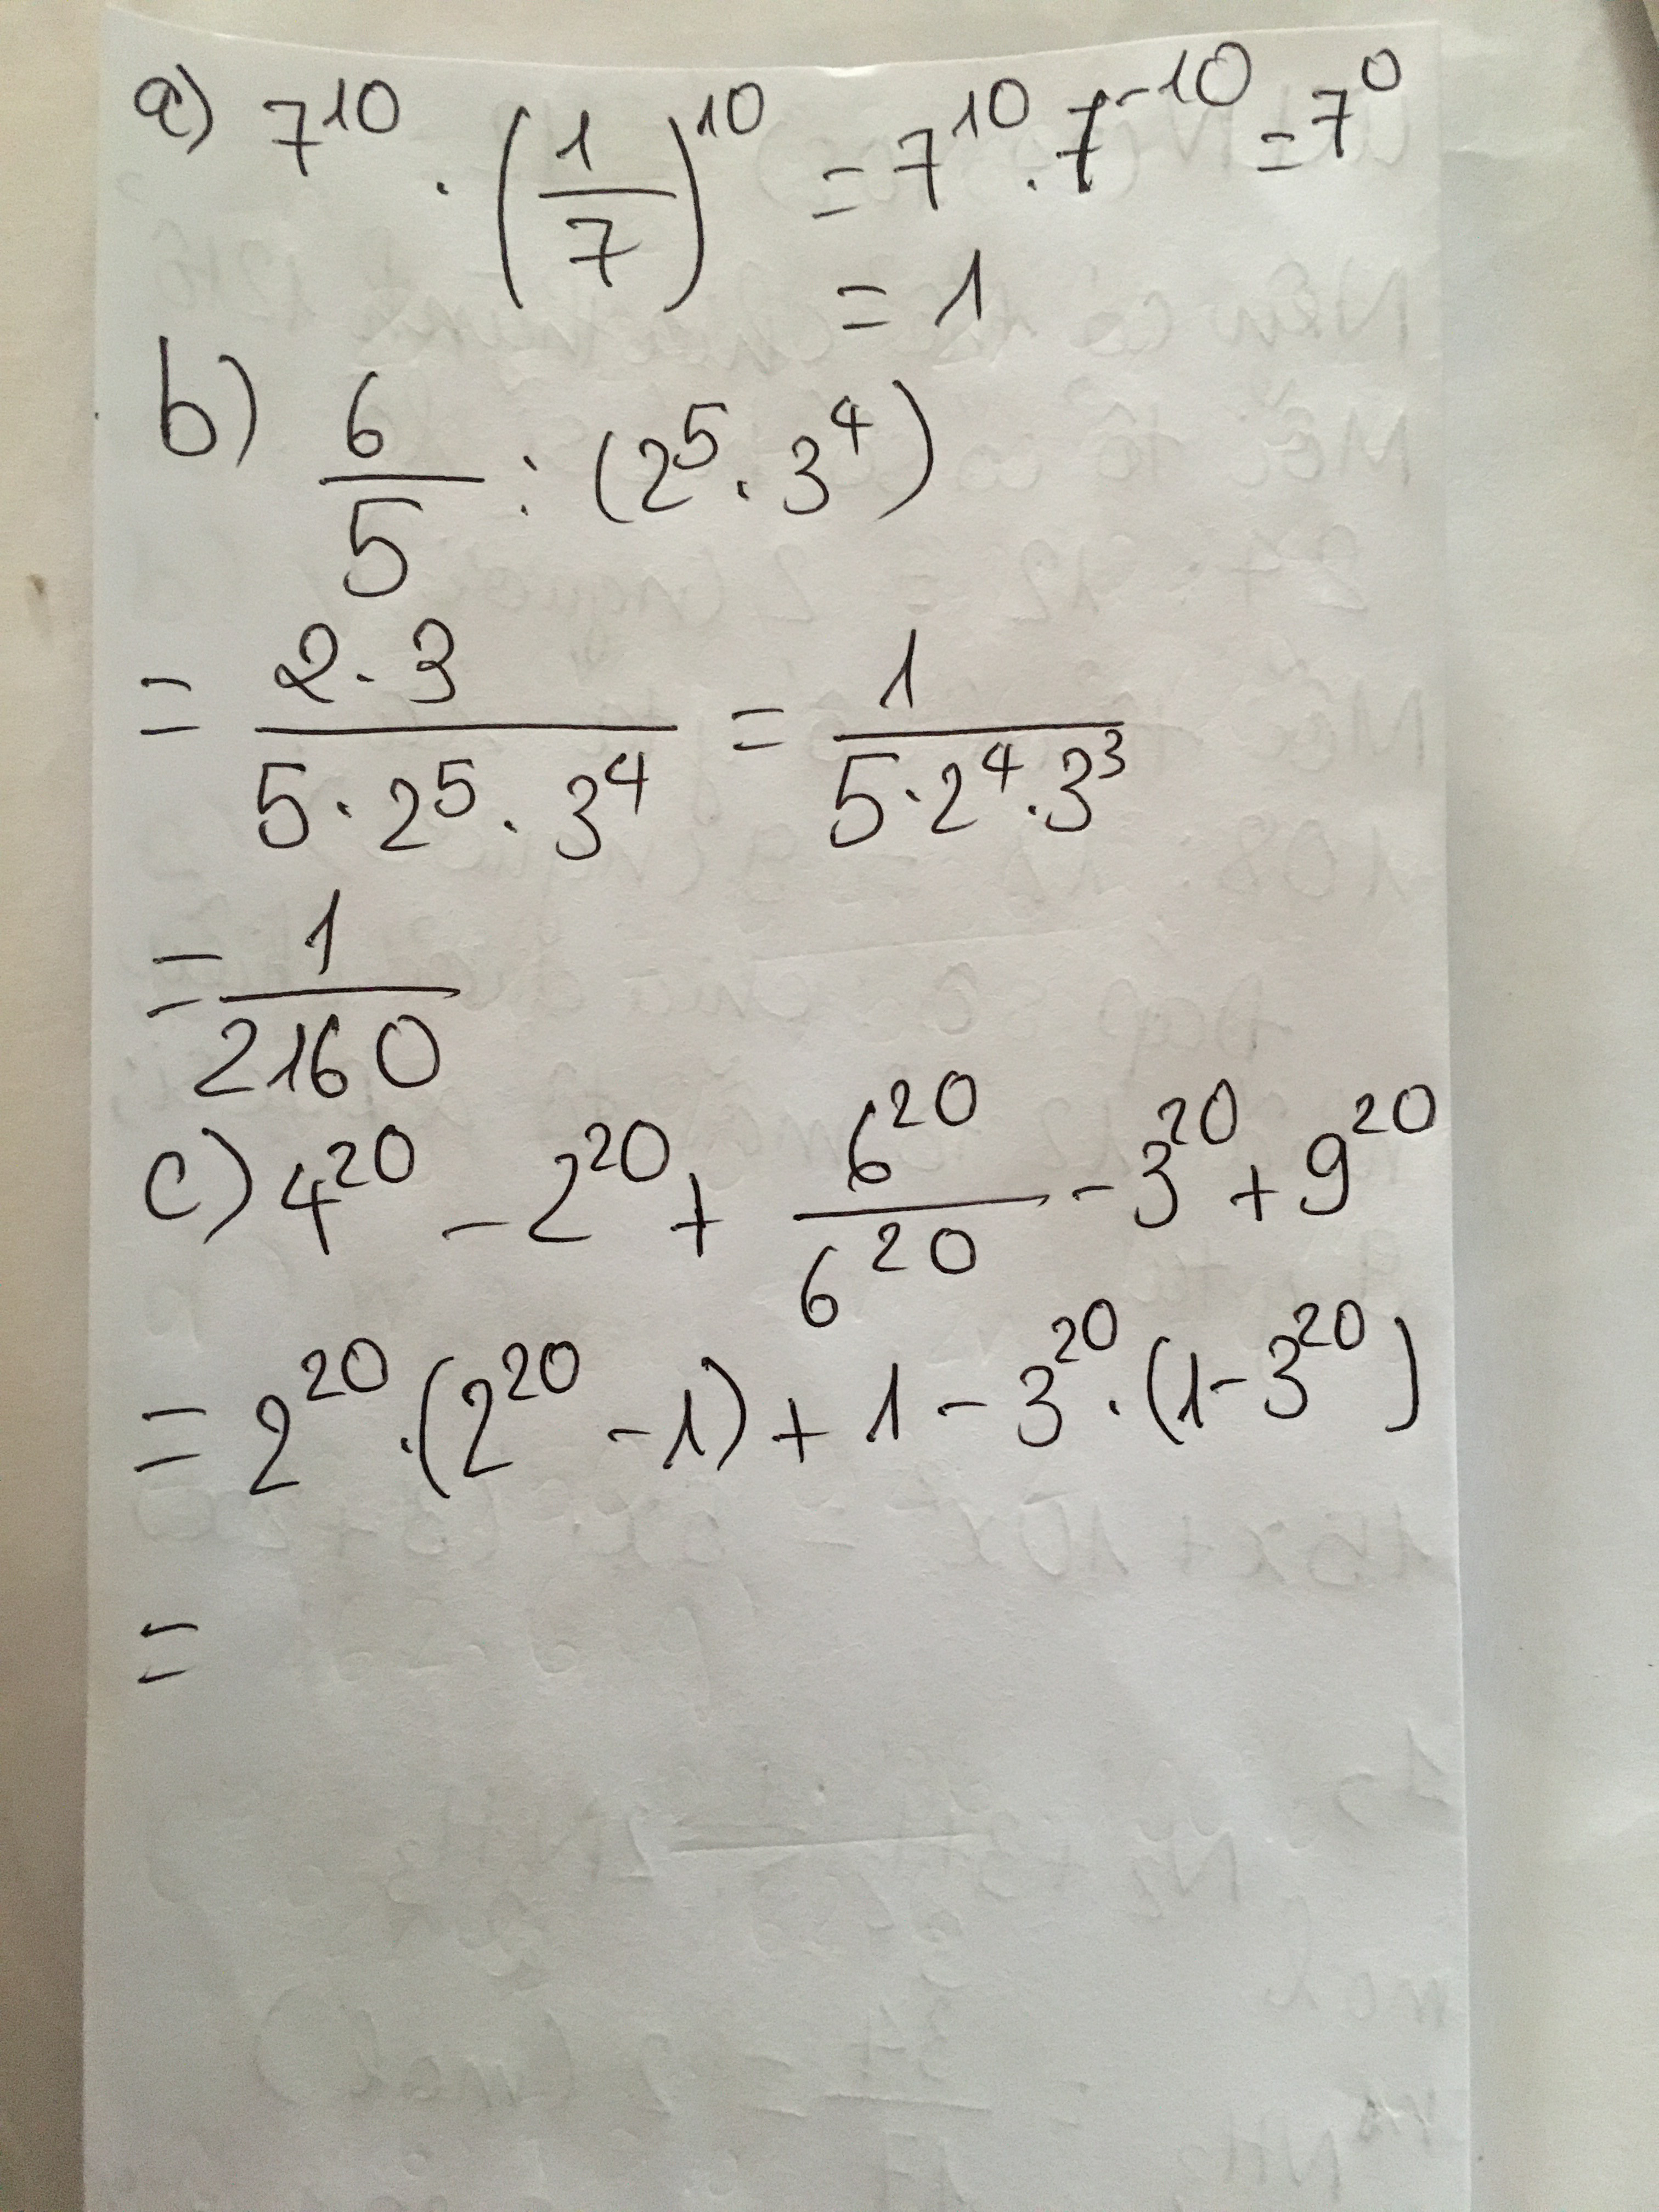 a) 7^10 . (1/7)^10 = 7^10 . 7^-10 = 7^0
= 1
b) 6/5 : (2^5 . 3^4)
= 2.3/5.2^5.3^4 = 1/5.2^4.3^3
= 1/2160
c) 4^20 - 2^20 + 6^20/6^20 - 3^20 + 9^20
= 2^20 . (2^20 - 1) + 1 - 3^20 . (1 - 3^20)
=